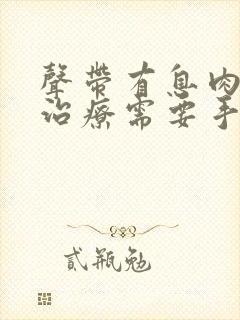 聲帶有息肉
治療需要手
貳瓶勉